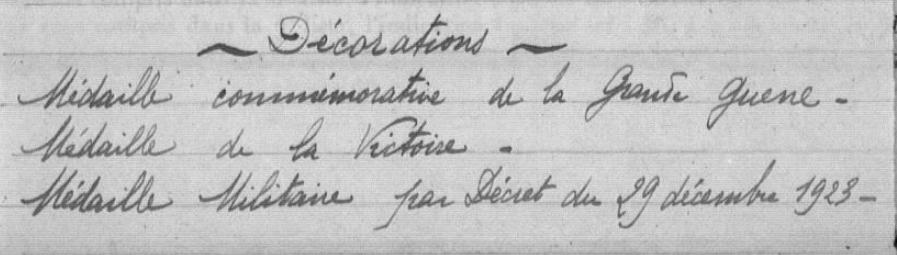 ~ Décorations ~
Médaille commémorative de la Grande Guerre -
Médaille de la Victoire -
Médaille Militaire par Décret du 29 décembre 1923 -